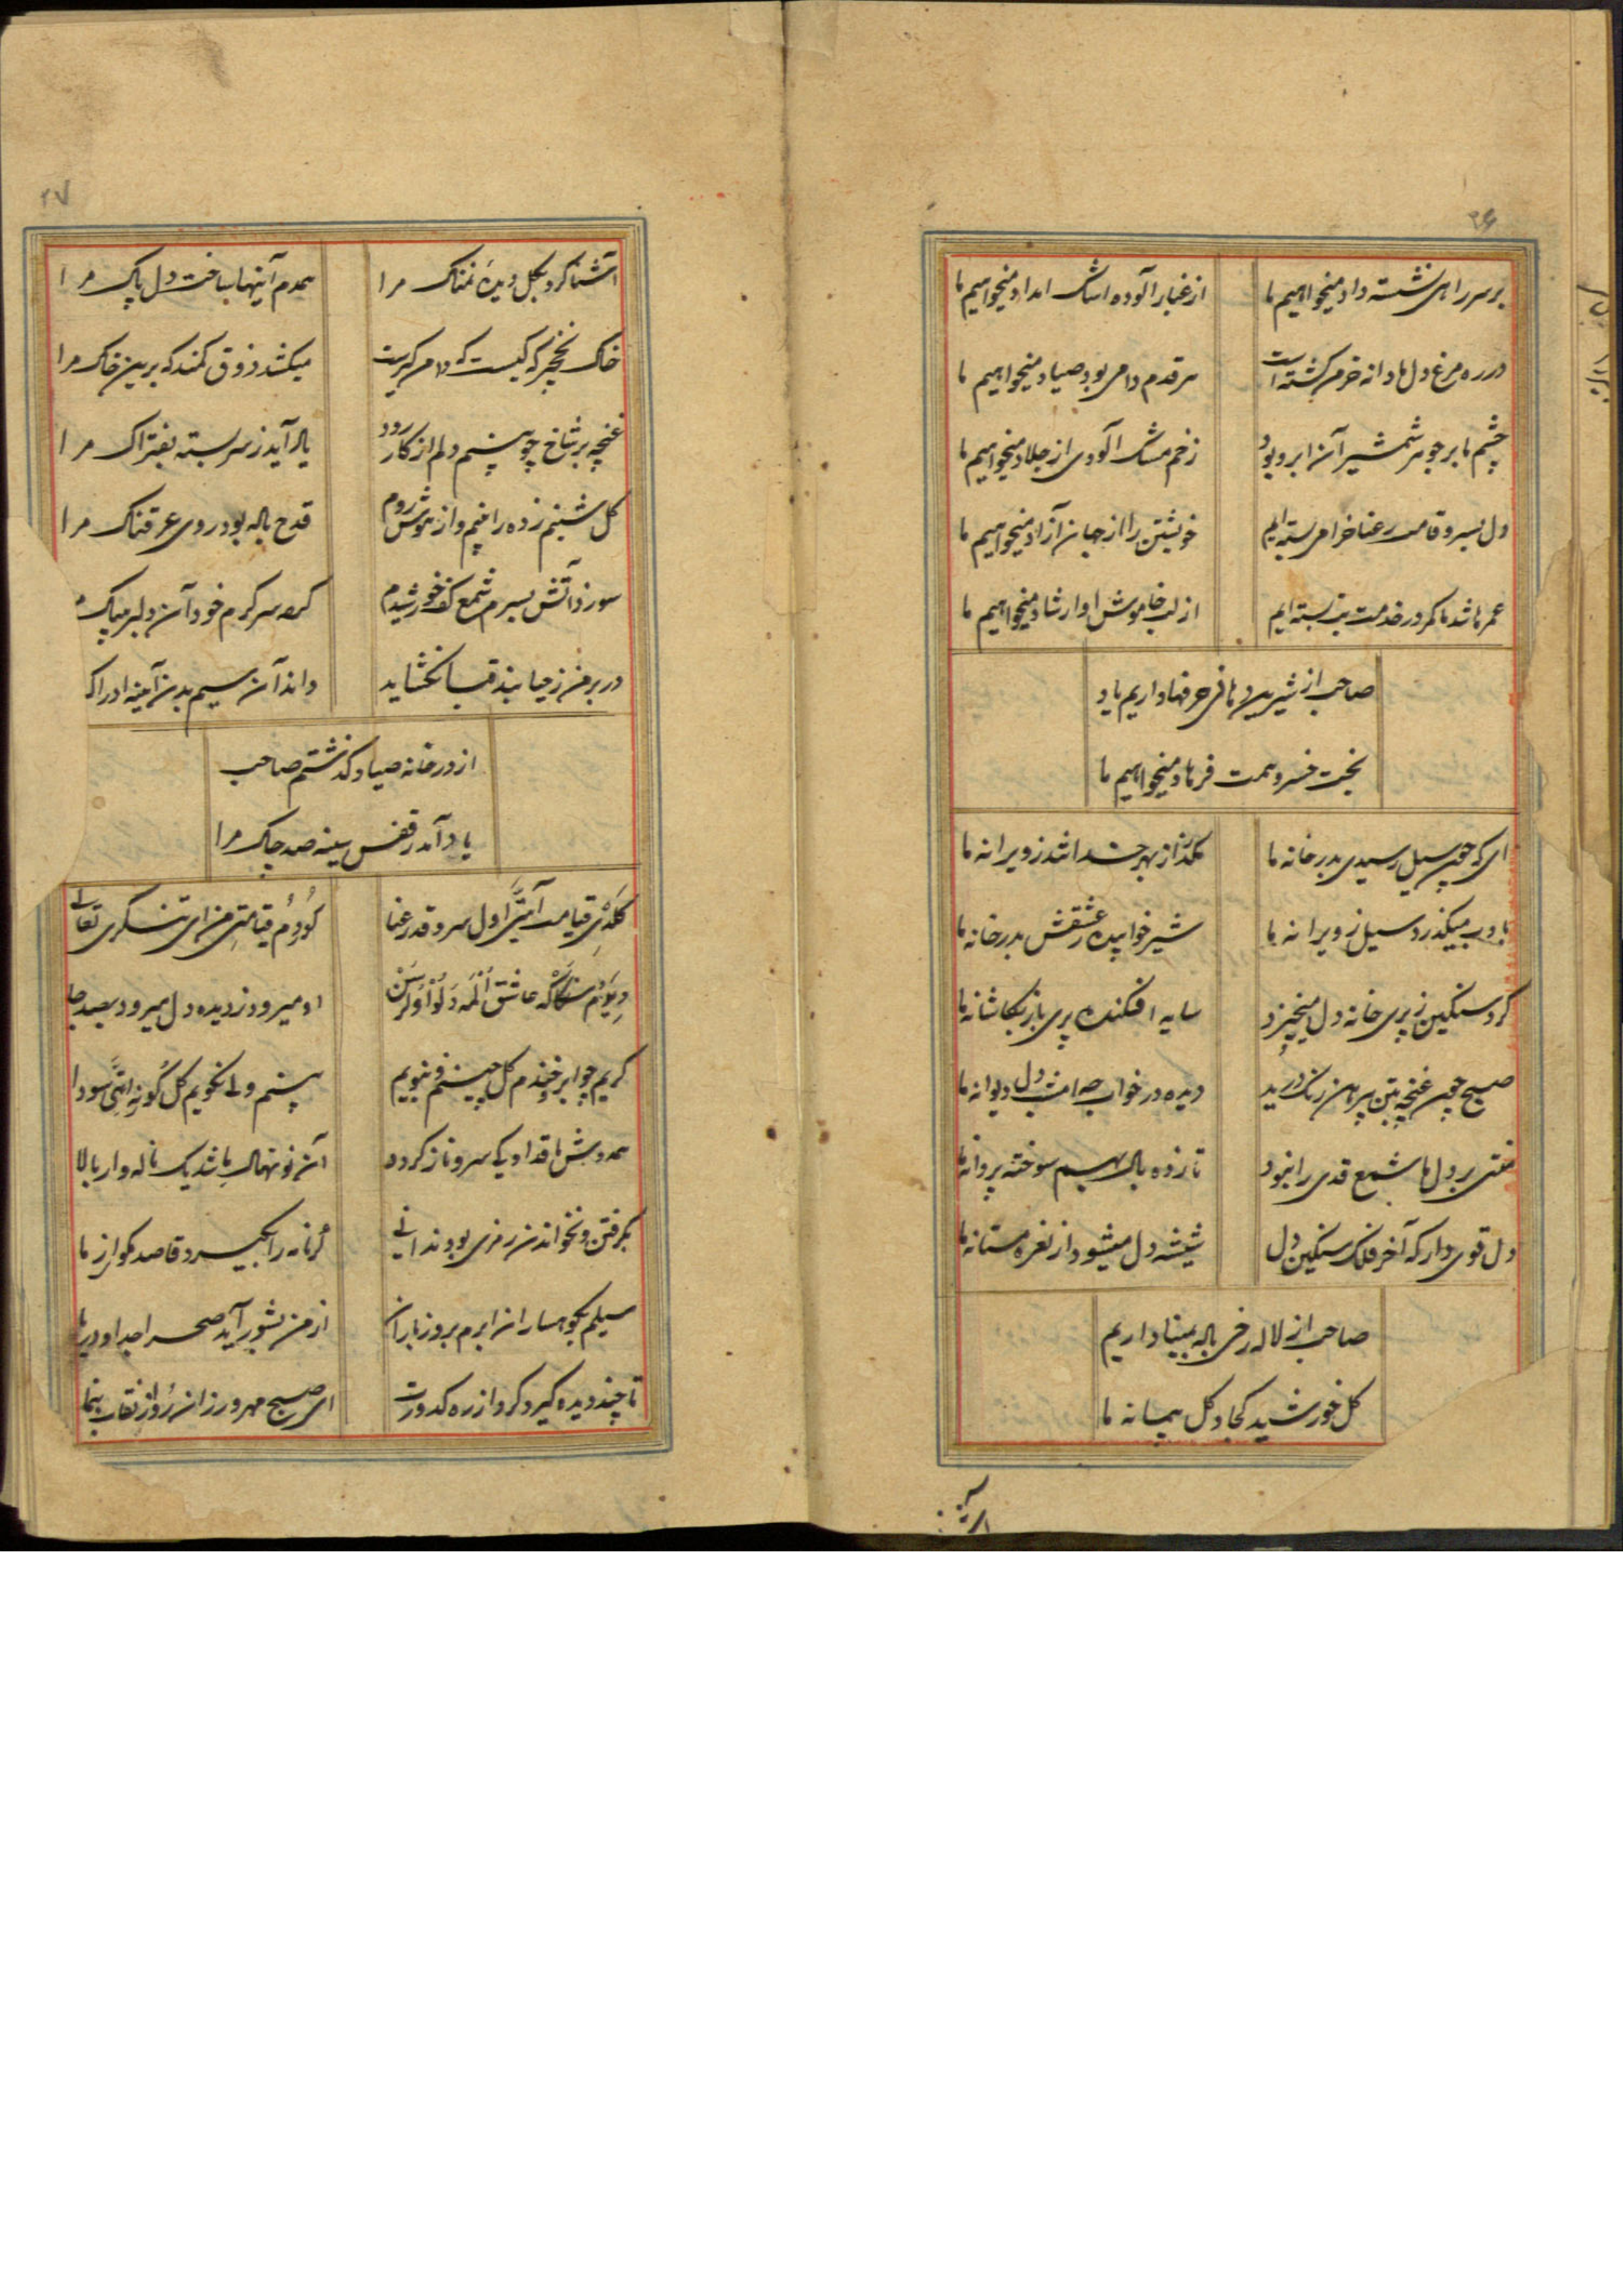 ۲۶
بر سر راهی نشسته داد میخواهیم ما
از غبار آلوده اشک امداد میخواهیم ما
در ره مرغ دل ما دانه خرمن کشته است
هر قدم دامی بود صیاد میخواهیم ما
چشم ما بر جوهر شمشیر آن ابرو بود
زخم مشک آلودی از جلاد میخواهیم ما
دل بسرو قامت رعنا خرامی بسته ایم
خویشتن را از جهان آزاد میخواهیم ما
عمر ما شد تا کمر در خدمت بت بسته ایم
از لب خاموش او ارشاد میخواهیم ما
صاحب از شیرین دهانی حرفها داریم یاد
بخت خسرو همت فرهاد میخواهیم ما
ای که چون سیل رسیدی بدر خانه ما
بگذر از بهر خدا تند ز ویرانه ما
با ادب میگذرد سیل ز ویرانه ما
شیر خوابیده ز عشقش بدر خانه ما
کرد سنگین ز پری خانه دل میخیزد
سایه افکنده پری باز بکاشانه ما
صبح چون غنچه بتن پیرهن رنگ درید
دیده در خواب چه امشب دل دیوانه ما
منتی بر دل ما شمع قدی را نبود
تا زده بال بهم سوخته پروانه ما
دل قوی دار که آخر فلک سنگین دل
شیشه دل میشود از نعره مستانه ما
صاحب از لاله رخی باله بمینا داریم
کل خورشید کجا و کل پیمانه ما
۲۷
آشنا کرد بکل دیده نمناک مرا
همدم آینها ساخت دل پاک مرا
خاک نخجیر که کیست که دامن گیرست
میکشد ذوق کمند که برین خاک مرا
غنچه بر شاخ چو بینم دلم از کار رود
یاد آید ز سر بسته بفتراک مرا
کل شبنم زده را بینم و از هوش روم
قدح باله بود روی عرقناک مرا
سوزد آتش بسرم شمع کف خورشیدم
کرده سرکرم خود آن دلبر
در بر من ز حیا بند قبا نکشاید
داند آن سیم بدن آینه ادراک
از در خانه صیاد کذشتم صاحب
یاد آمد ز قفس سینه صد چاک مرا
کلدی قیامت آیتی اول سرو قد رعنا
کوردم قیامتی من ای تنکری تعالی
او میرود ز دیده دل میرود بصد جا
کریم چو ابر و خندم کل چینم و نبویم
بینم ولی نکویم کل کونه اتی سودا
همدوش با قد او یک سرو ناز کردد
آن نونهال باشد یک ناله وار بالا
بکرفتن و نخواندن رمزی بود ندانی
کر نامه را نکیرد قاصد مکو از ما
سیلم بکوهساران ابرم بروز باران
از من بشور آید صحرا جدا و دریا
تا چند دیده گیرد کرد از ره کدورت
ای صبح مهر ورزان رو از نقاب بنما